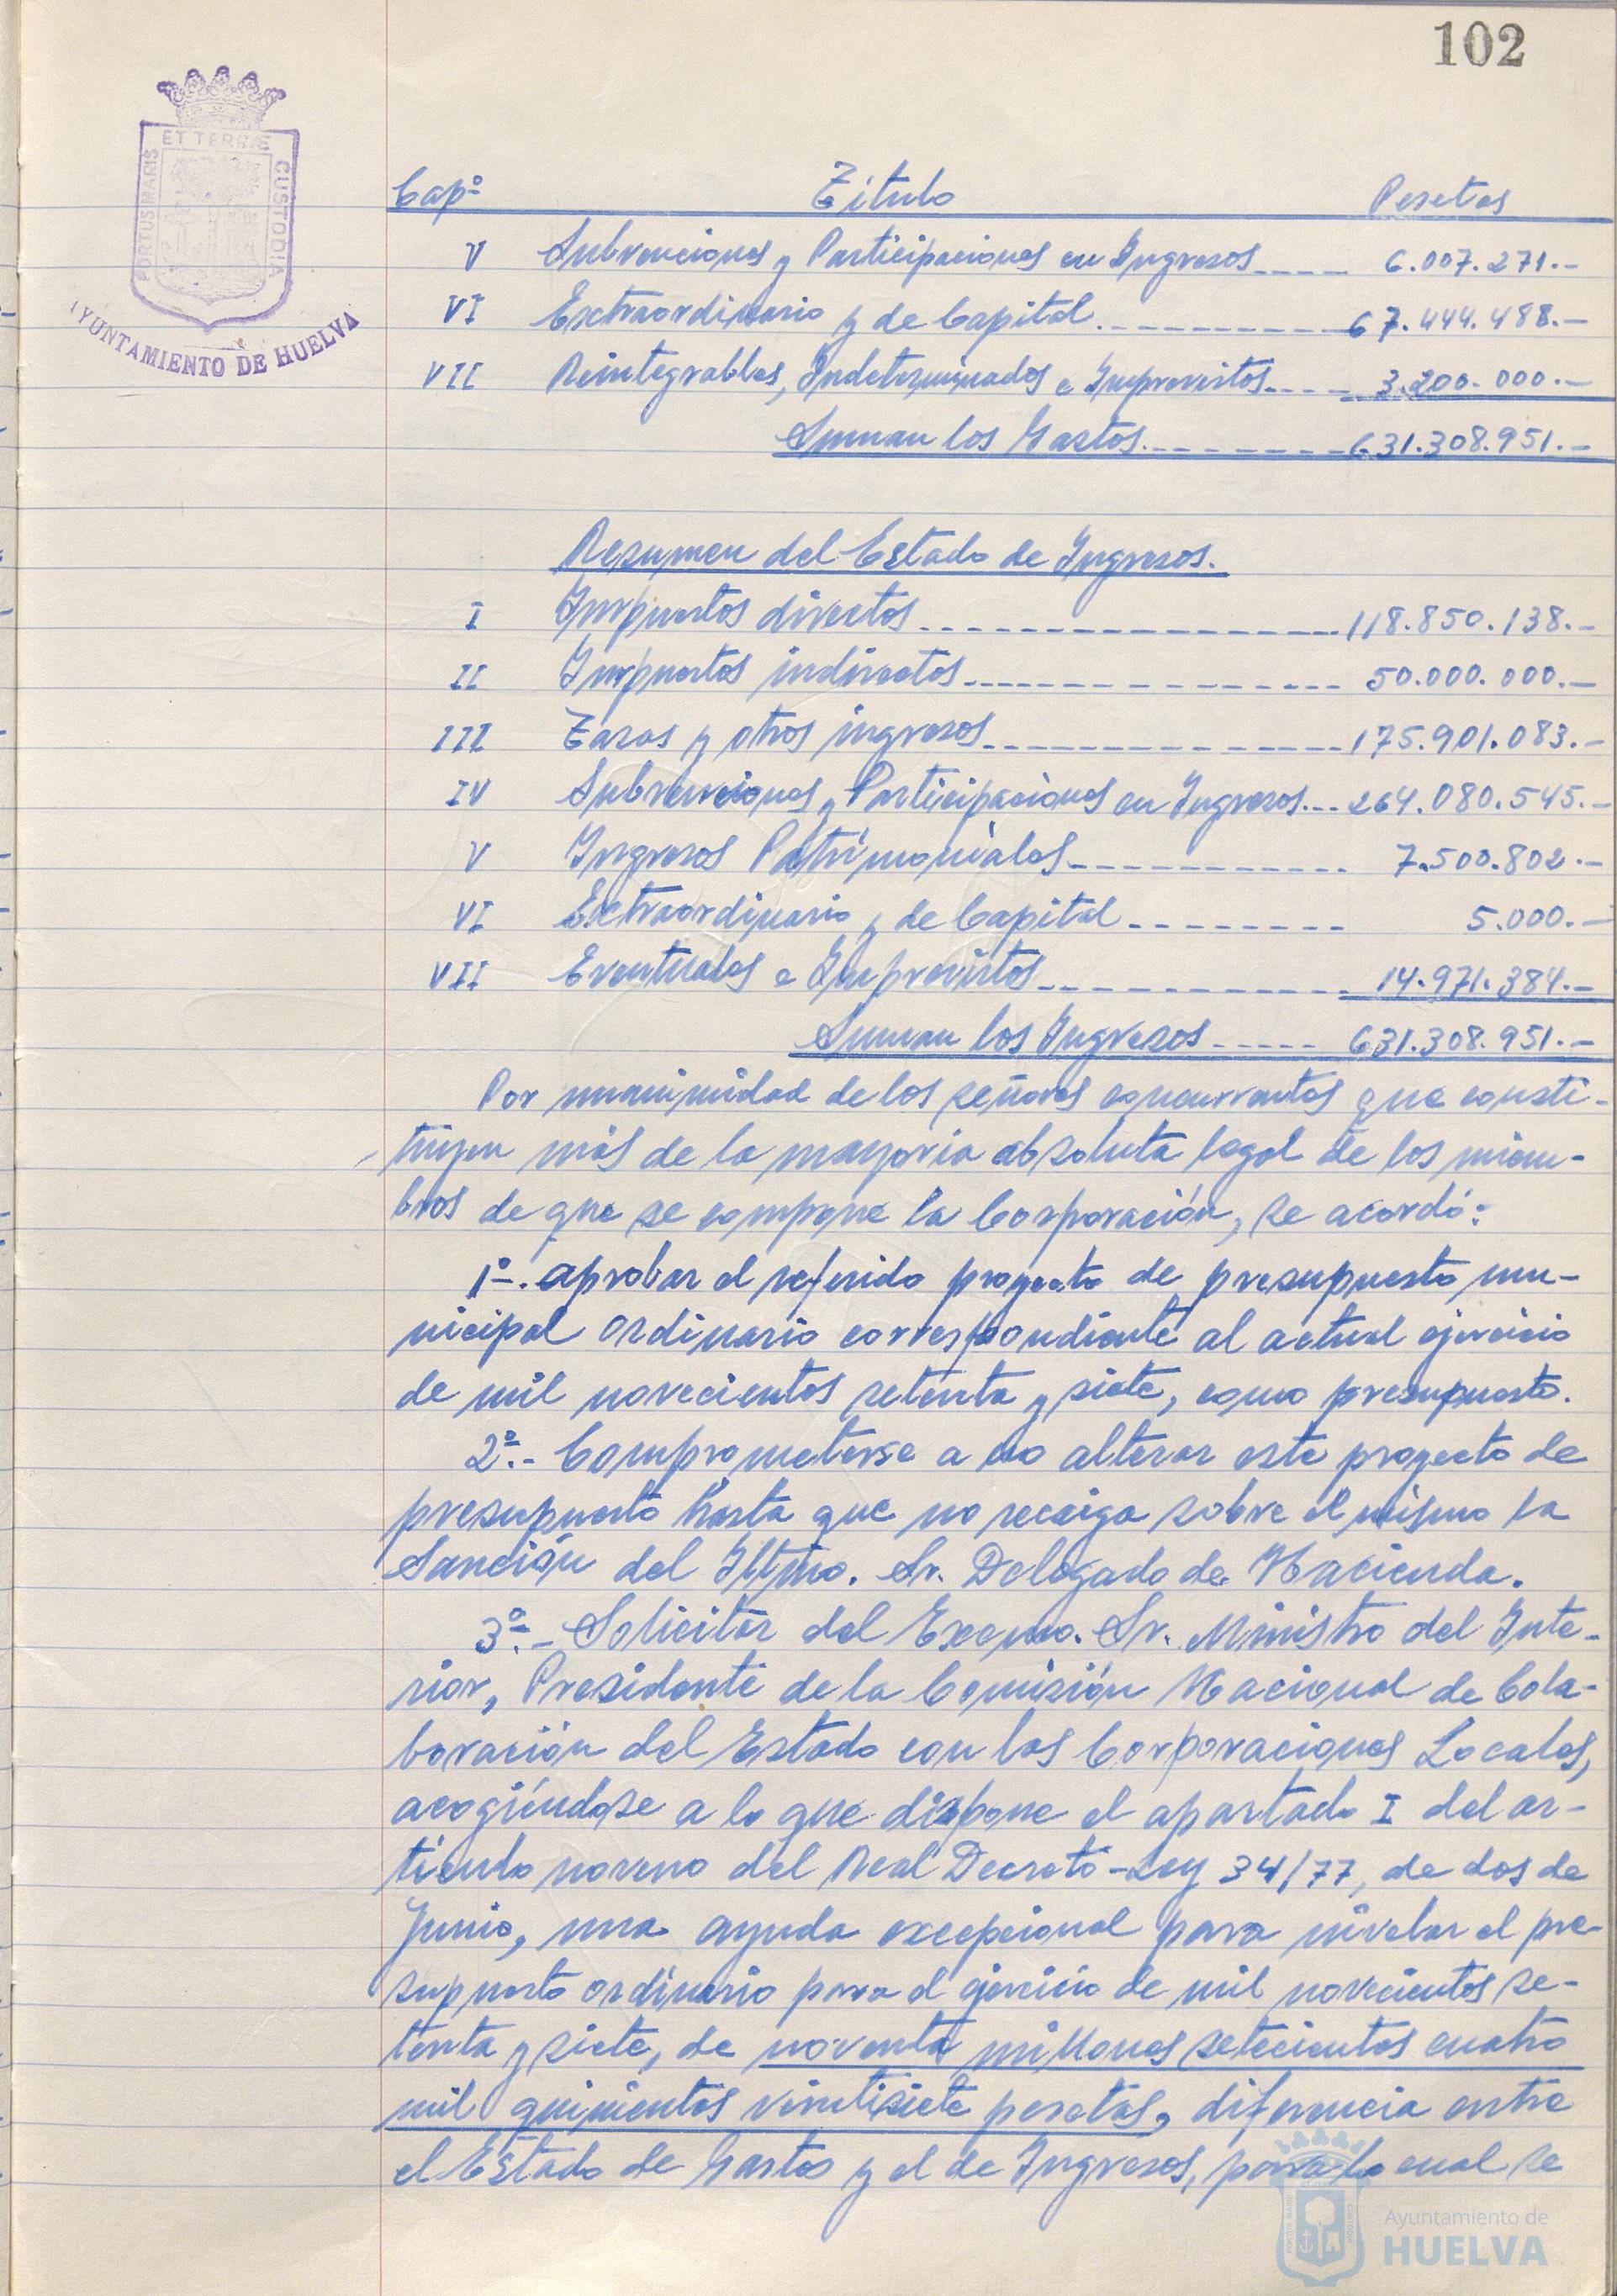 102
ET TERRÆ
PORTUS MARIS
CUSTODIA
AYUNTAMIENTO DE HUELVA
Capº Titulo Pesetas
V Subvenciones y Participaciones en Ingresos 6.007.271.-
VI Extraordinario y de Capital 67.444.488.-
VII Reintegrables, Indeterminados e Imprevistos 3.200.000.-
Suman los Gastos 631.308.951.-
Resumen del Estado de Ingresos.
I Impuestos directos 118.850.138.-
II Impuestos indirectos 50.000.000.-
III Tasas y otros ingresos 175.901.083.-
IV Subvenciones y Participaciones en Ingresos 264.080.545.-
V Ingresos Patrimoniales 7.500.802.-
VI Extraordinario y de Capital 5.000.-
VII Eventuales e Imprevistos 14.971.384.-
Suman los Ingresos 631.308.951.-
Por unanimidad de los señores concurrentes que consti-
tuyen más de la mayoria absoluta legal de los miem-
bros de que se compone la Corporación, se acordó:
1º-. aprobar el referido proyecto de presupuesto mu-
nicipal ordinario correspondiente al actual ejercicio
de mil novecientos setenta y siete, como presupuesto.
2º.- Comprometerse a no alterar este proyecto de
presupuesto hasta que no recaiga sobre el mismo la
Sanción del Iltmo. Sr. Delegado de Hacienda.
3º.- Solicitar del Excmo. Sr. Ministro del Inte-
rior, Presidente de la Comisión Nacional de Cola-
boración del Estado con las Corporaciones Locales,
acogiéndose a lo que dispone el apartado I del ar-
tículo noveno del Real Decreto-Ley 34/77, de dos de
Junio, una ayuda excepcional para nivelar el pre-
supuesto ordinario para el ejercicio de mil novecientos se-
tenta y siete, de noventa millones setecientos cuatro
mil quinientos veintisiete pesetas, diferencia entre
el Estado de Gastos y el de Ingresos, para lo cual se
Ayuntamiento de
HUELVA